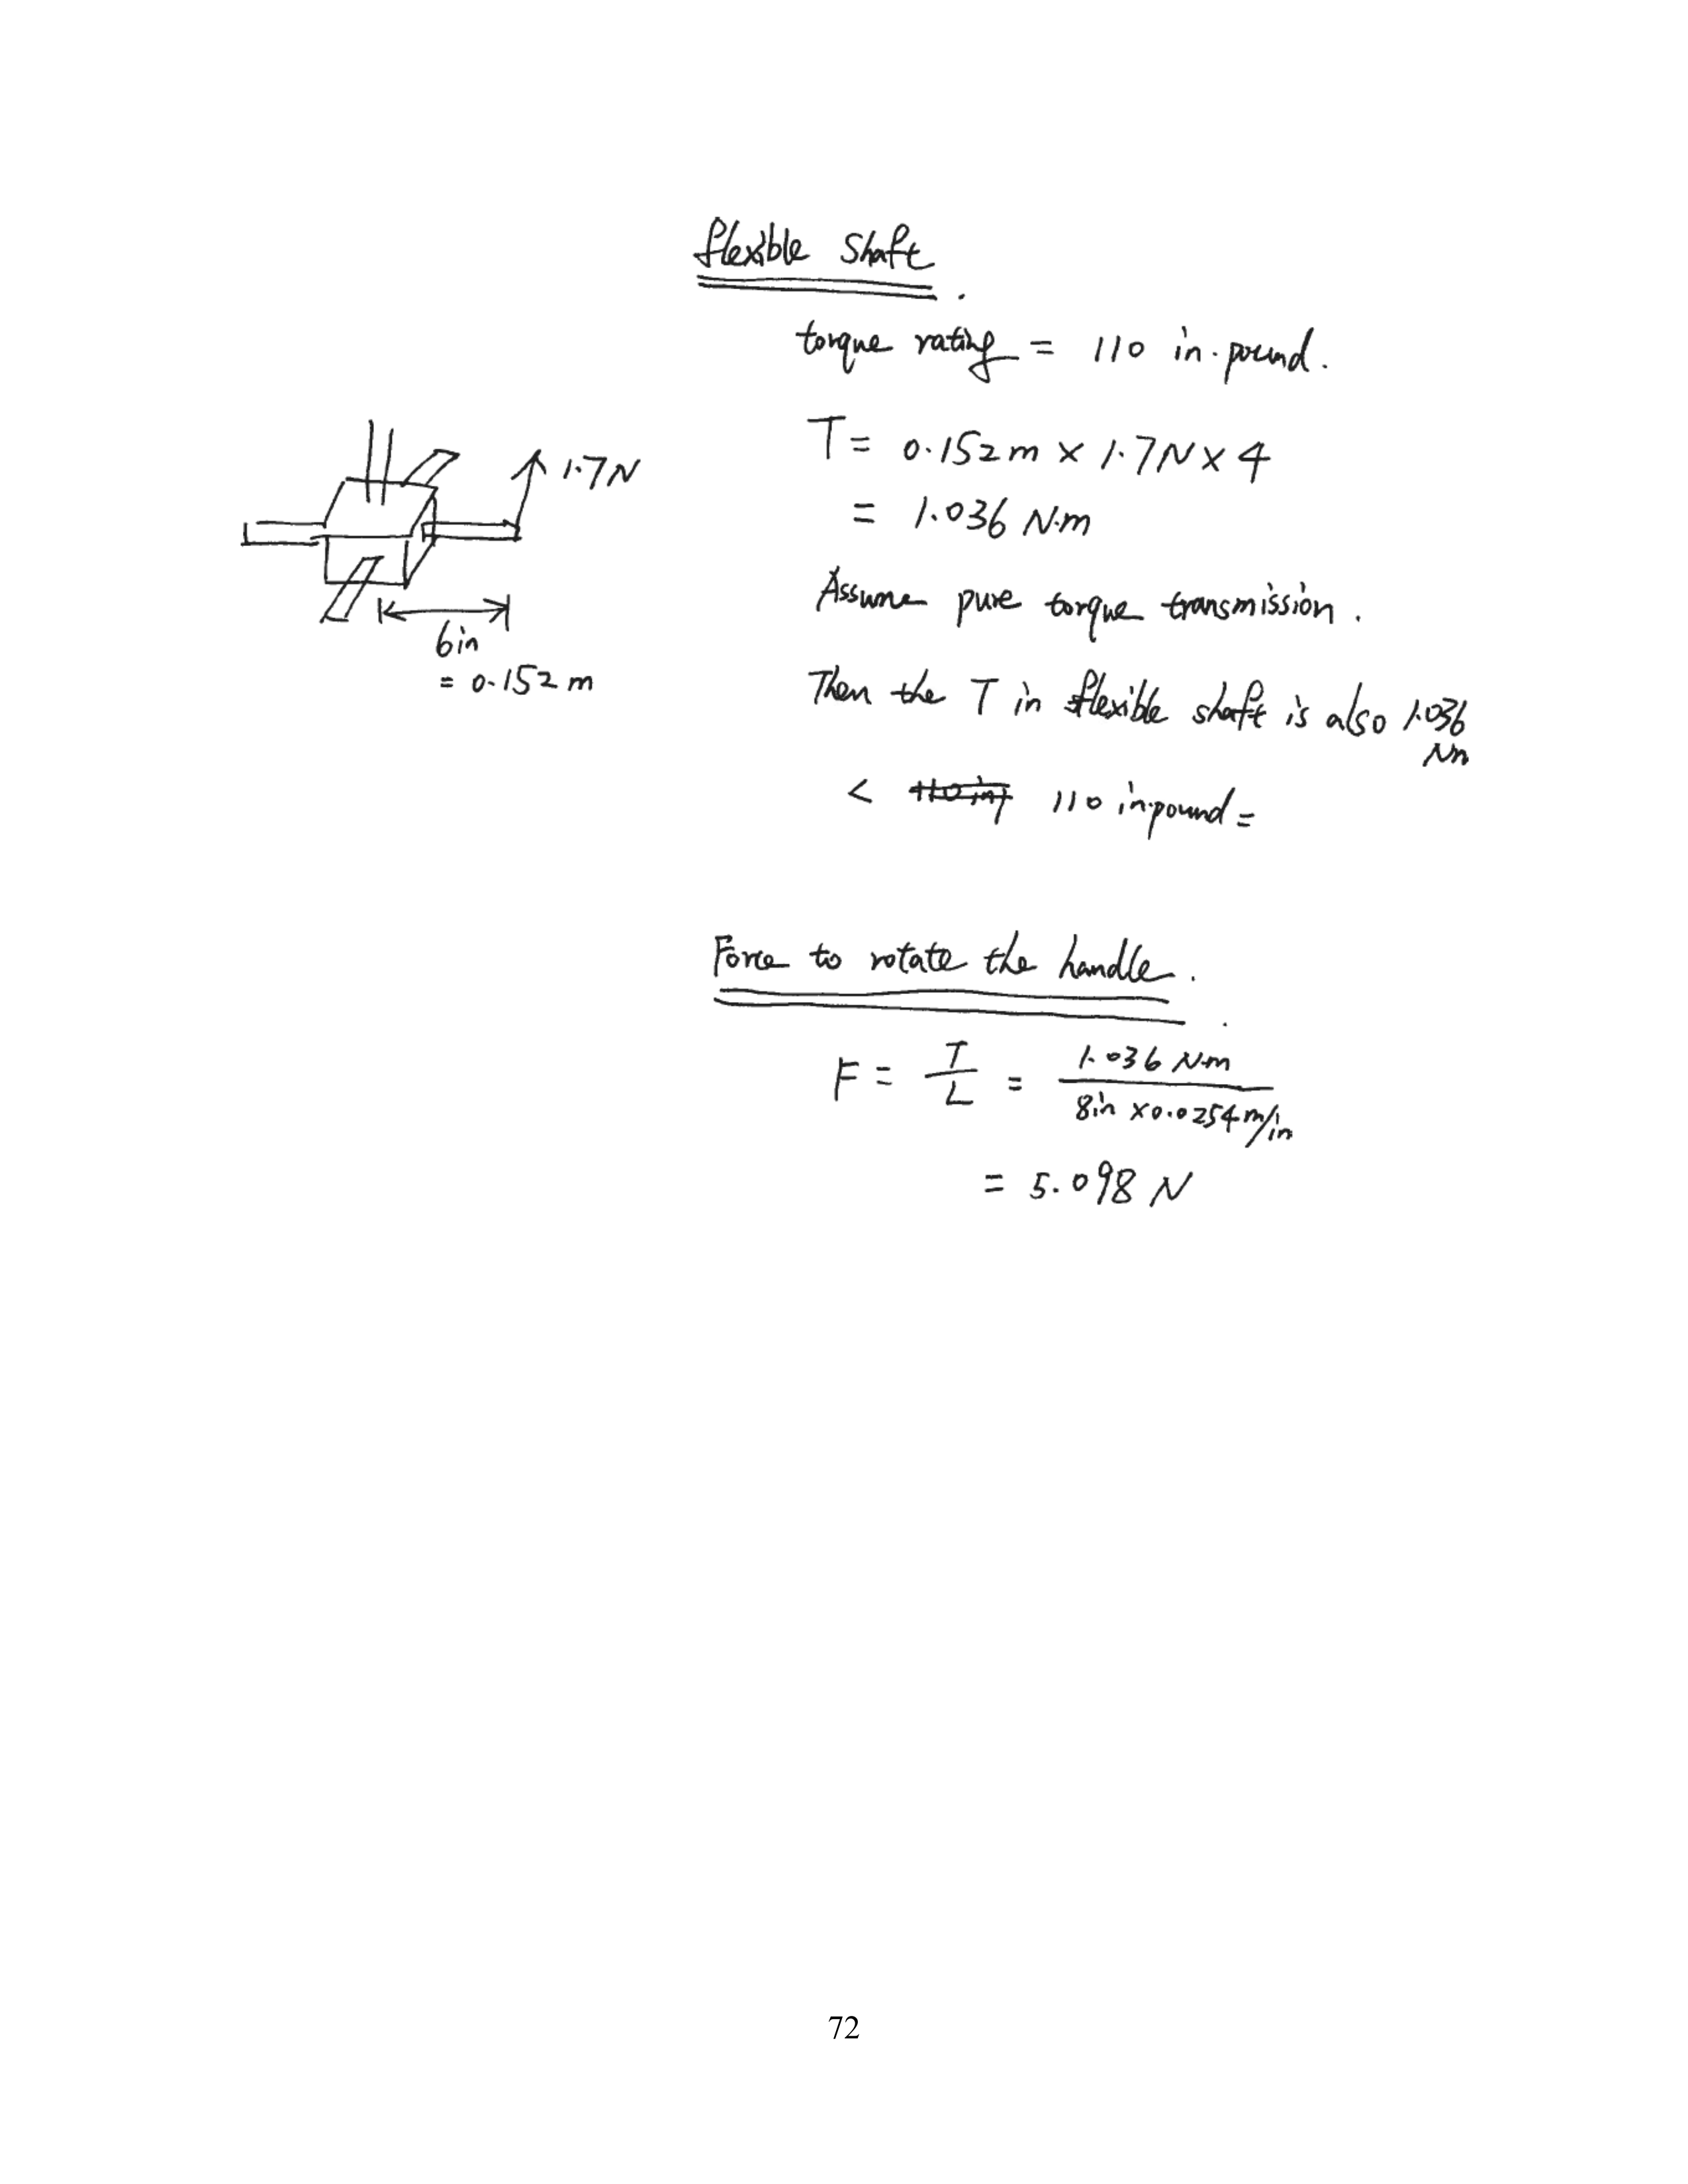 flexible shaft.
torque rating = 110 in.pound.
T = 0.152m × 1.7N × 4
= 1.036 N.m
1.7N
6in
= 0.152m
Assume pure torque transmission.
Then the T in flexible shaft is also 1.036
Nm
< 110 in.pound =
Force to rotate the handle.
F = T/L = 1.036 N.m / 8in × 0.0254m/in
= 5.098 N
72